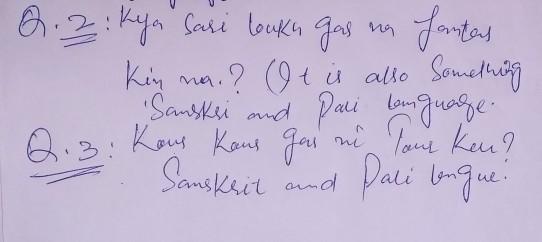 Q.2: Kya Sari louku gas na fantas
Kin na.? (It is also Something
Sanskri and Pali language.
Q.3: Kaus Kaus gas ni Taus Keu?
Sanskrit and Pali lengue.